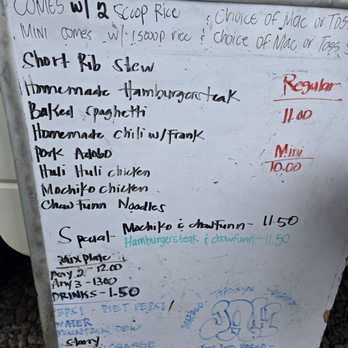 COMES W/ 2 SCOOP Rice & Choice of Mac or Toss
MINI COMES w/ 1 scoop rice & choice of Mac or Toss
Short Rib Stew
Homemade Hamburgersteak
Regular
Baked Spaghetti
11.00
Homemade Chili w/Frank
Pork Adobo
Mini
Huli Huli chicken
10.00
Mochiko chicken
Chowfunn Noodles
Special Mochiko & chowfunn - 11.50
Hamburgersteak & chowfunn - 11.50
Mix Plate
Any 2 - 12.00
Any 3 - 13.00
DRINKS - 1.50
PEPSI DIET PEPSI
WATER
MOUNTAIN DEW